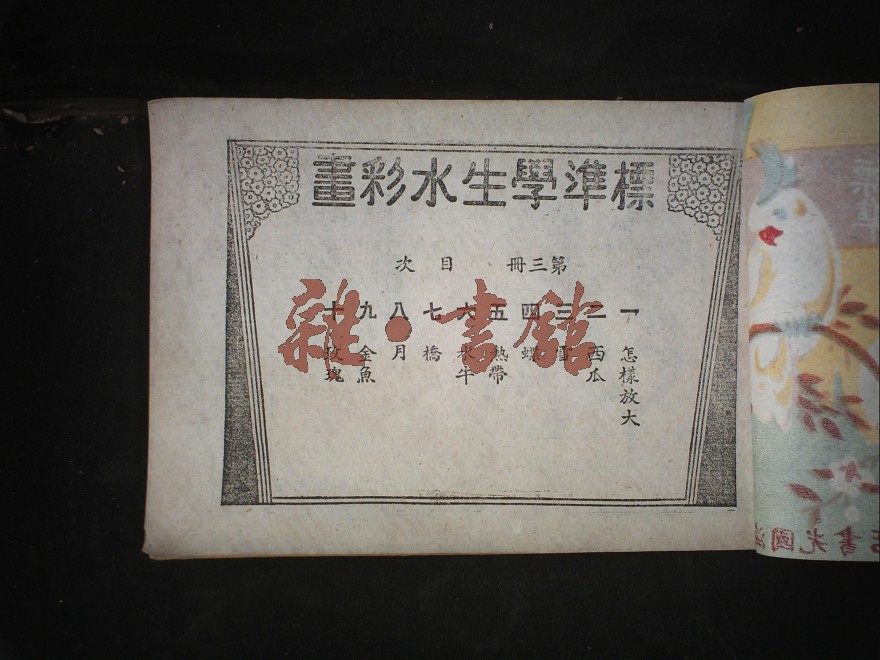 標準學生水彩畫
第三冊 目次
一 怎樣放大
二 西瓜
三 雪
四 蝶
五 熱帶
六 水牛
七 橋
八 月
九 金魚
十 玫瑰
雜·書館